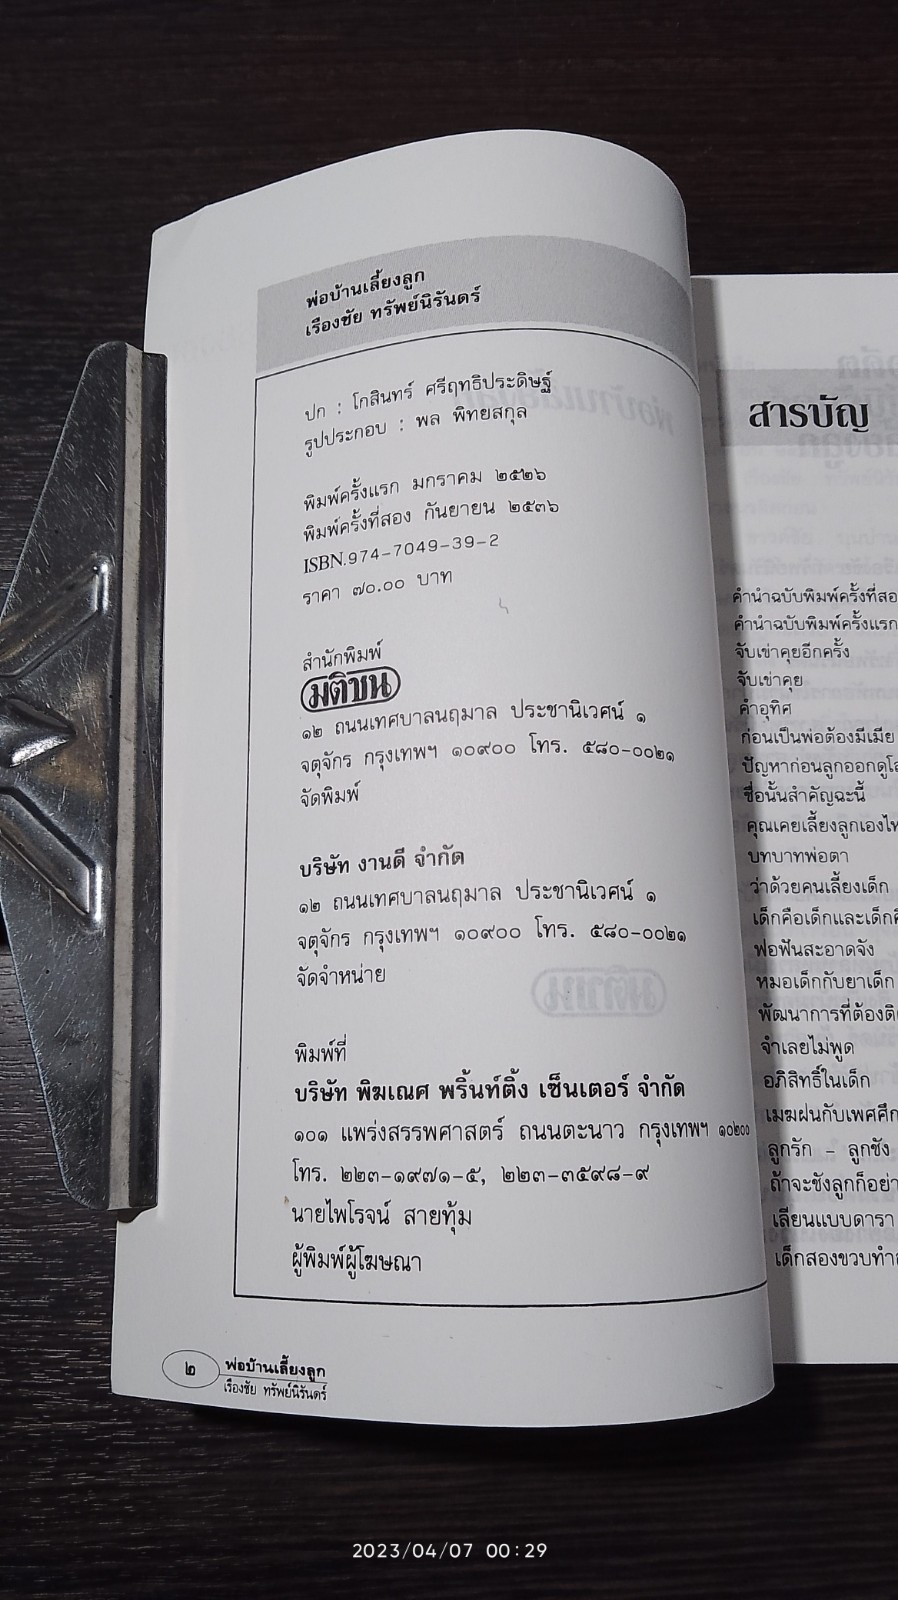 พ่อบ้านเลี้ยงลูก
เรืองชัย ทรัพย์นิรันดร์
ปก : โกสินทร์ ศรีฤทธิประดิษฐ์
รูปประกอบ : พล พิทยสกุล
พิมพ์ครั้งแรก มกราคม ๒๕๒๖
พิมพ์ครั้งที่สอง กันยายน ๒๕๓๖
ISBN.974-7049-39-2
ราคา ๗๐.๐๐ บาท
สำนักพิมพ์
มติชน
๑๒ ถนนเทศบาลนฤมาล ประชานิเวศน์ ๑
จตุจักร กรุงเทพฯ ๑๐๙๐๐ โทร. ๕๘๐-๐๐๒๑
จัดพิมพ์
บริษัท งานดี จำกัด
๑๒ ถนนเทศบาลนฤมาล ประชานิเวศน์ ๑
จตุจักร กรุงเทพฯ ๑๐๙๐๐ โทร. ๕๘๐-๐๐๒๑
จัดจำหน่าย
พิมพ์ที่
บริษัท พิฆเณศ พริ้นท์ติ้ง เซ็นเตอร์ จำกัด
๑๐๑ แพร่งสรรพศาสตร์ ถนนตะนาว กรุงเทพฯ ๑๐๒๐๐
โทร. ๒๒๓-๑๙๗๑-๕, ๒๒๓-๓๕๙๘-๙
นายไพโรจน์ สายทุ้ม
ผู้พิมพ์ผู้โฆษณา
๒ พ่อบ้านเลี้ยงลูก
เรืองชัย ทรัพย์นิรันดร์
สารบัญ
คำนำฉบับพิมพ์ครั้งที่สอ
คำนำฉบับพิมพ์ครั้งแรก
จับเข่าคุยอีกครั้ง
จับเข่าคุย
คำอุทิศ
ก่อนเป็นพ่อต้องมีเมีย
ปัญหาก่อนลูกออกดูโล
ชื่อนั้นสำคัญฉะนี้
คุณเคยเลี้ยงลูกเองไห
บทบาทพ่อตา
ว่าด้วยคนเลี้ยงเด็ก
เด็กคือเด็กและเด็กคื
ฟอฟันสะอาดจัง
หมอเด็กกับยาเด็ก
พัฒนาการที่ต้องติด
จำเลยไม่พูด
อภิสิทธิ์ในเด็ก
เมฆฝนกับเพศศึก
ลูกรัก - ลูกชัง
ถ้าจะชังลูกก็อย่า
เลียนแบบดารา
เด็กสองขวบทำอ
2023/04/07 00:29